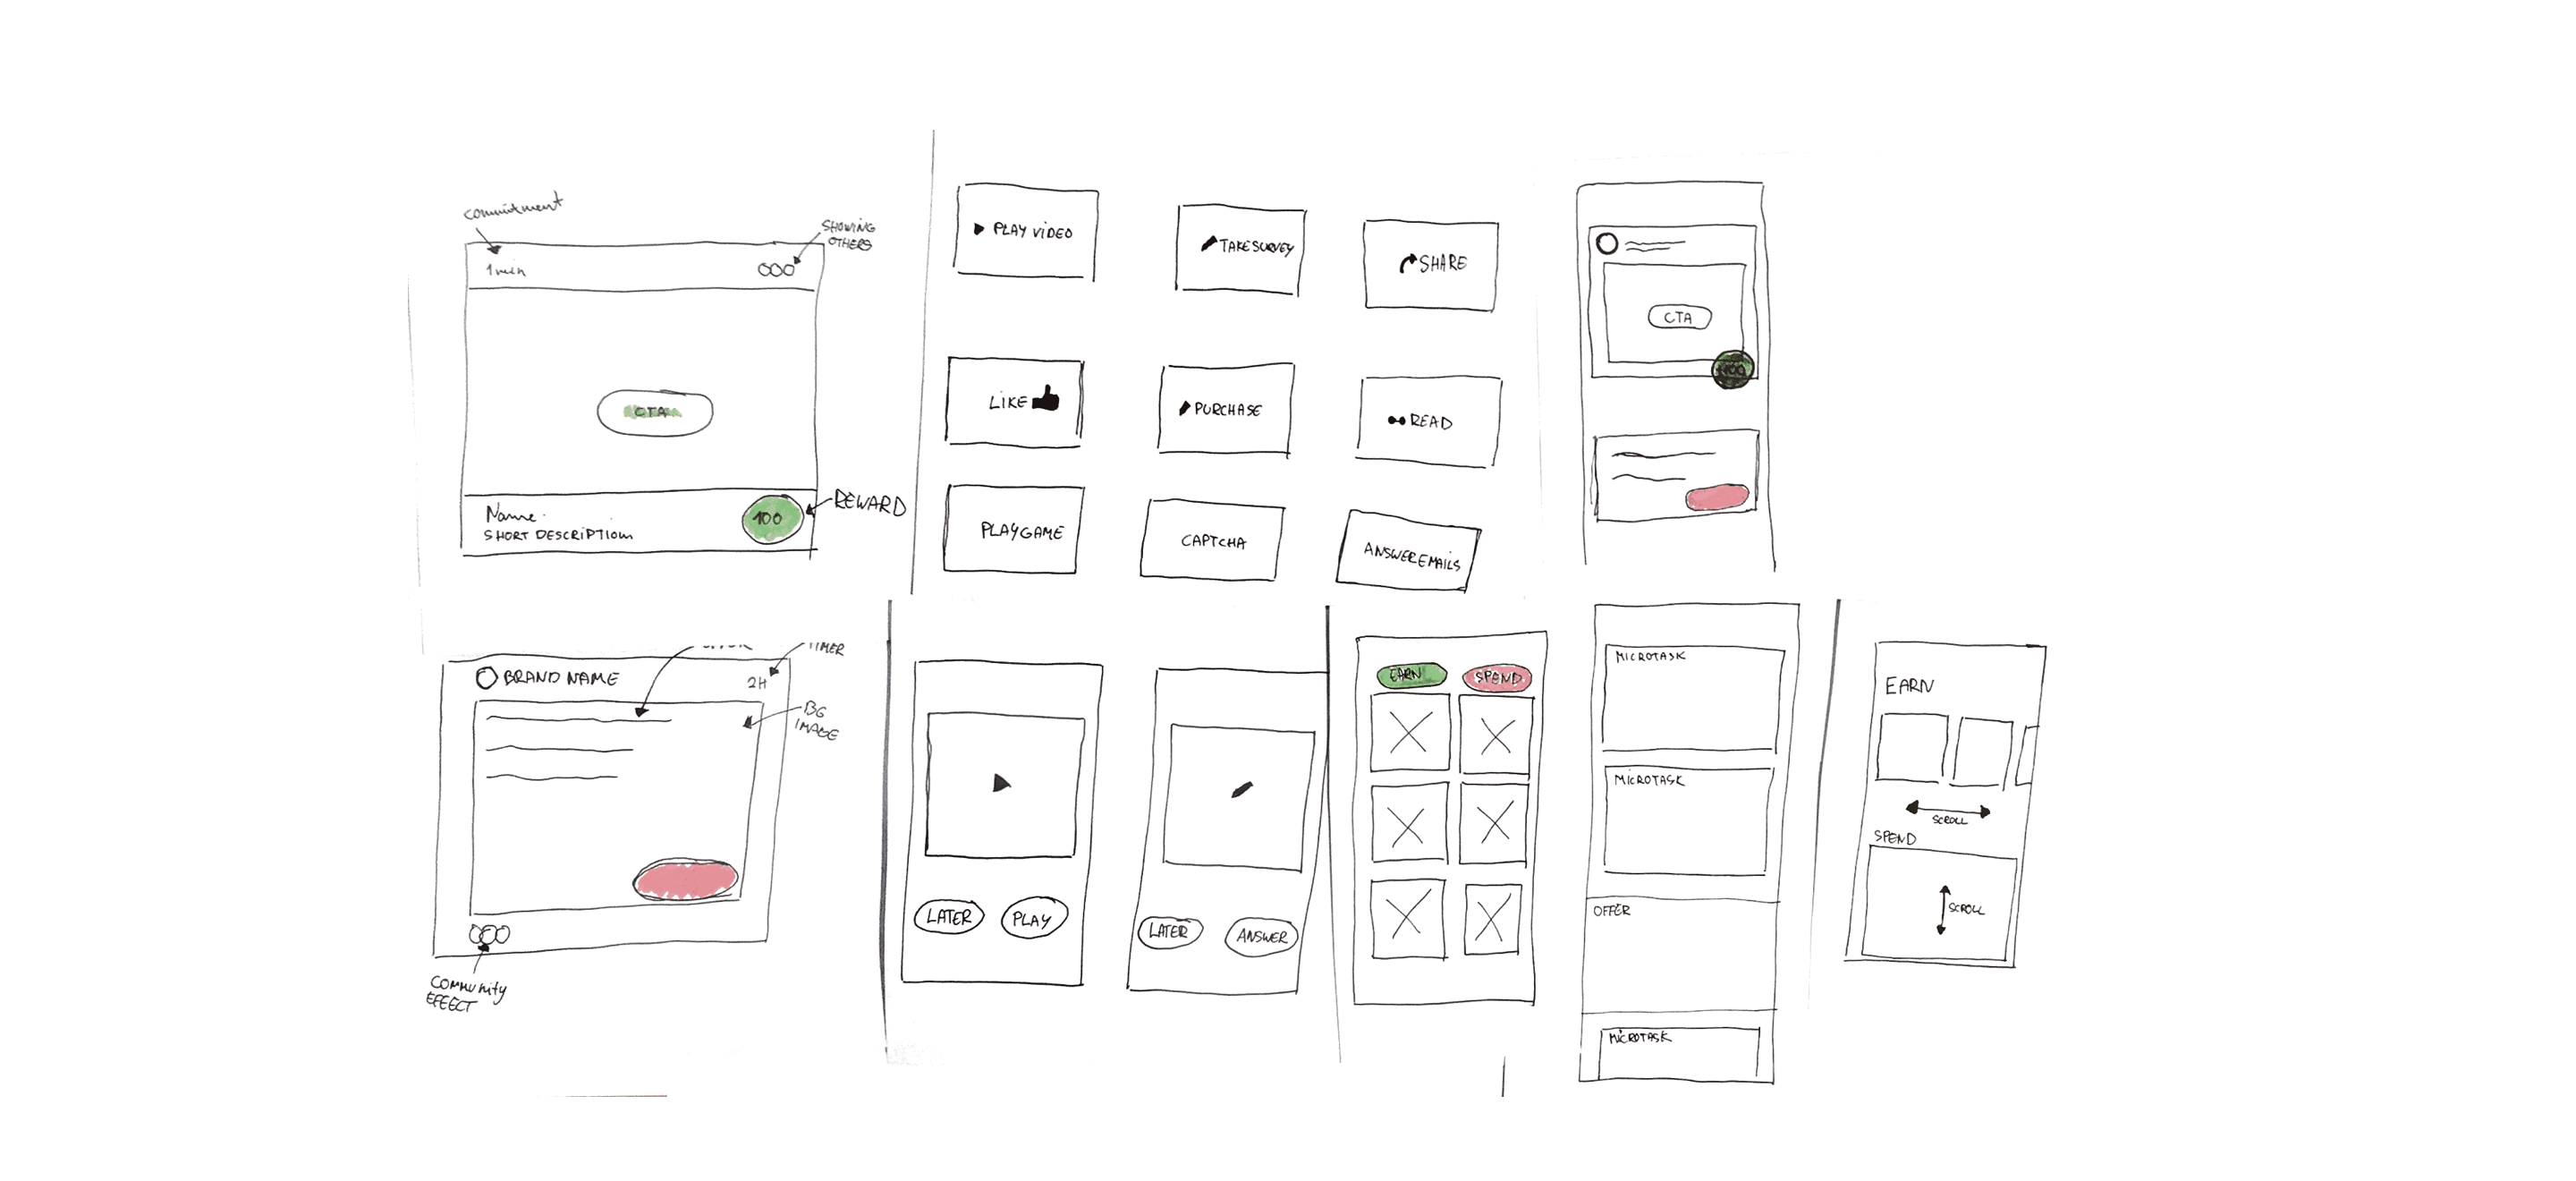 commitment
SHOWING
OTHERS
1 min
CTA
Name
SHORT DESCRIPTION
100
REWARD
PLAY VIDEO
TAKE SURVEY
SHARE
LIKE
PURCHASE
READ
PLAY GAME
CAPTCHA
ANSWER EMAILS
CTA
100
TIMER
BRAND NAME
2H
BG
IMAGE
COMMUNITY
EFFECT
LATER
PLAY
LATER
ANSWER
EARN
SPEND
MICROTASK
MICROTASK
OFFER
MICROTASK
EARN
SCROLL
SPEND
SCROLL